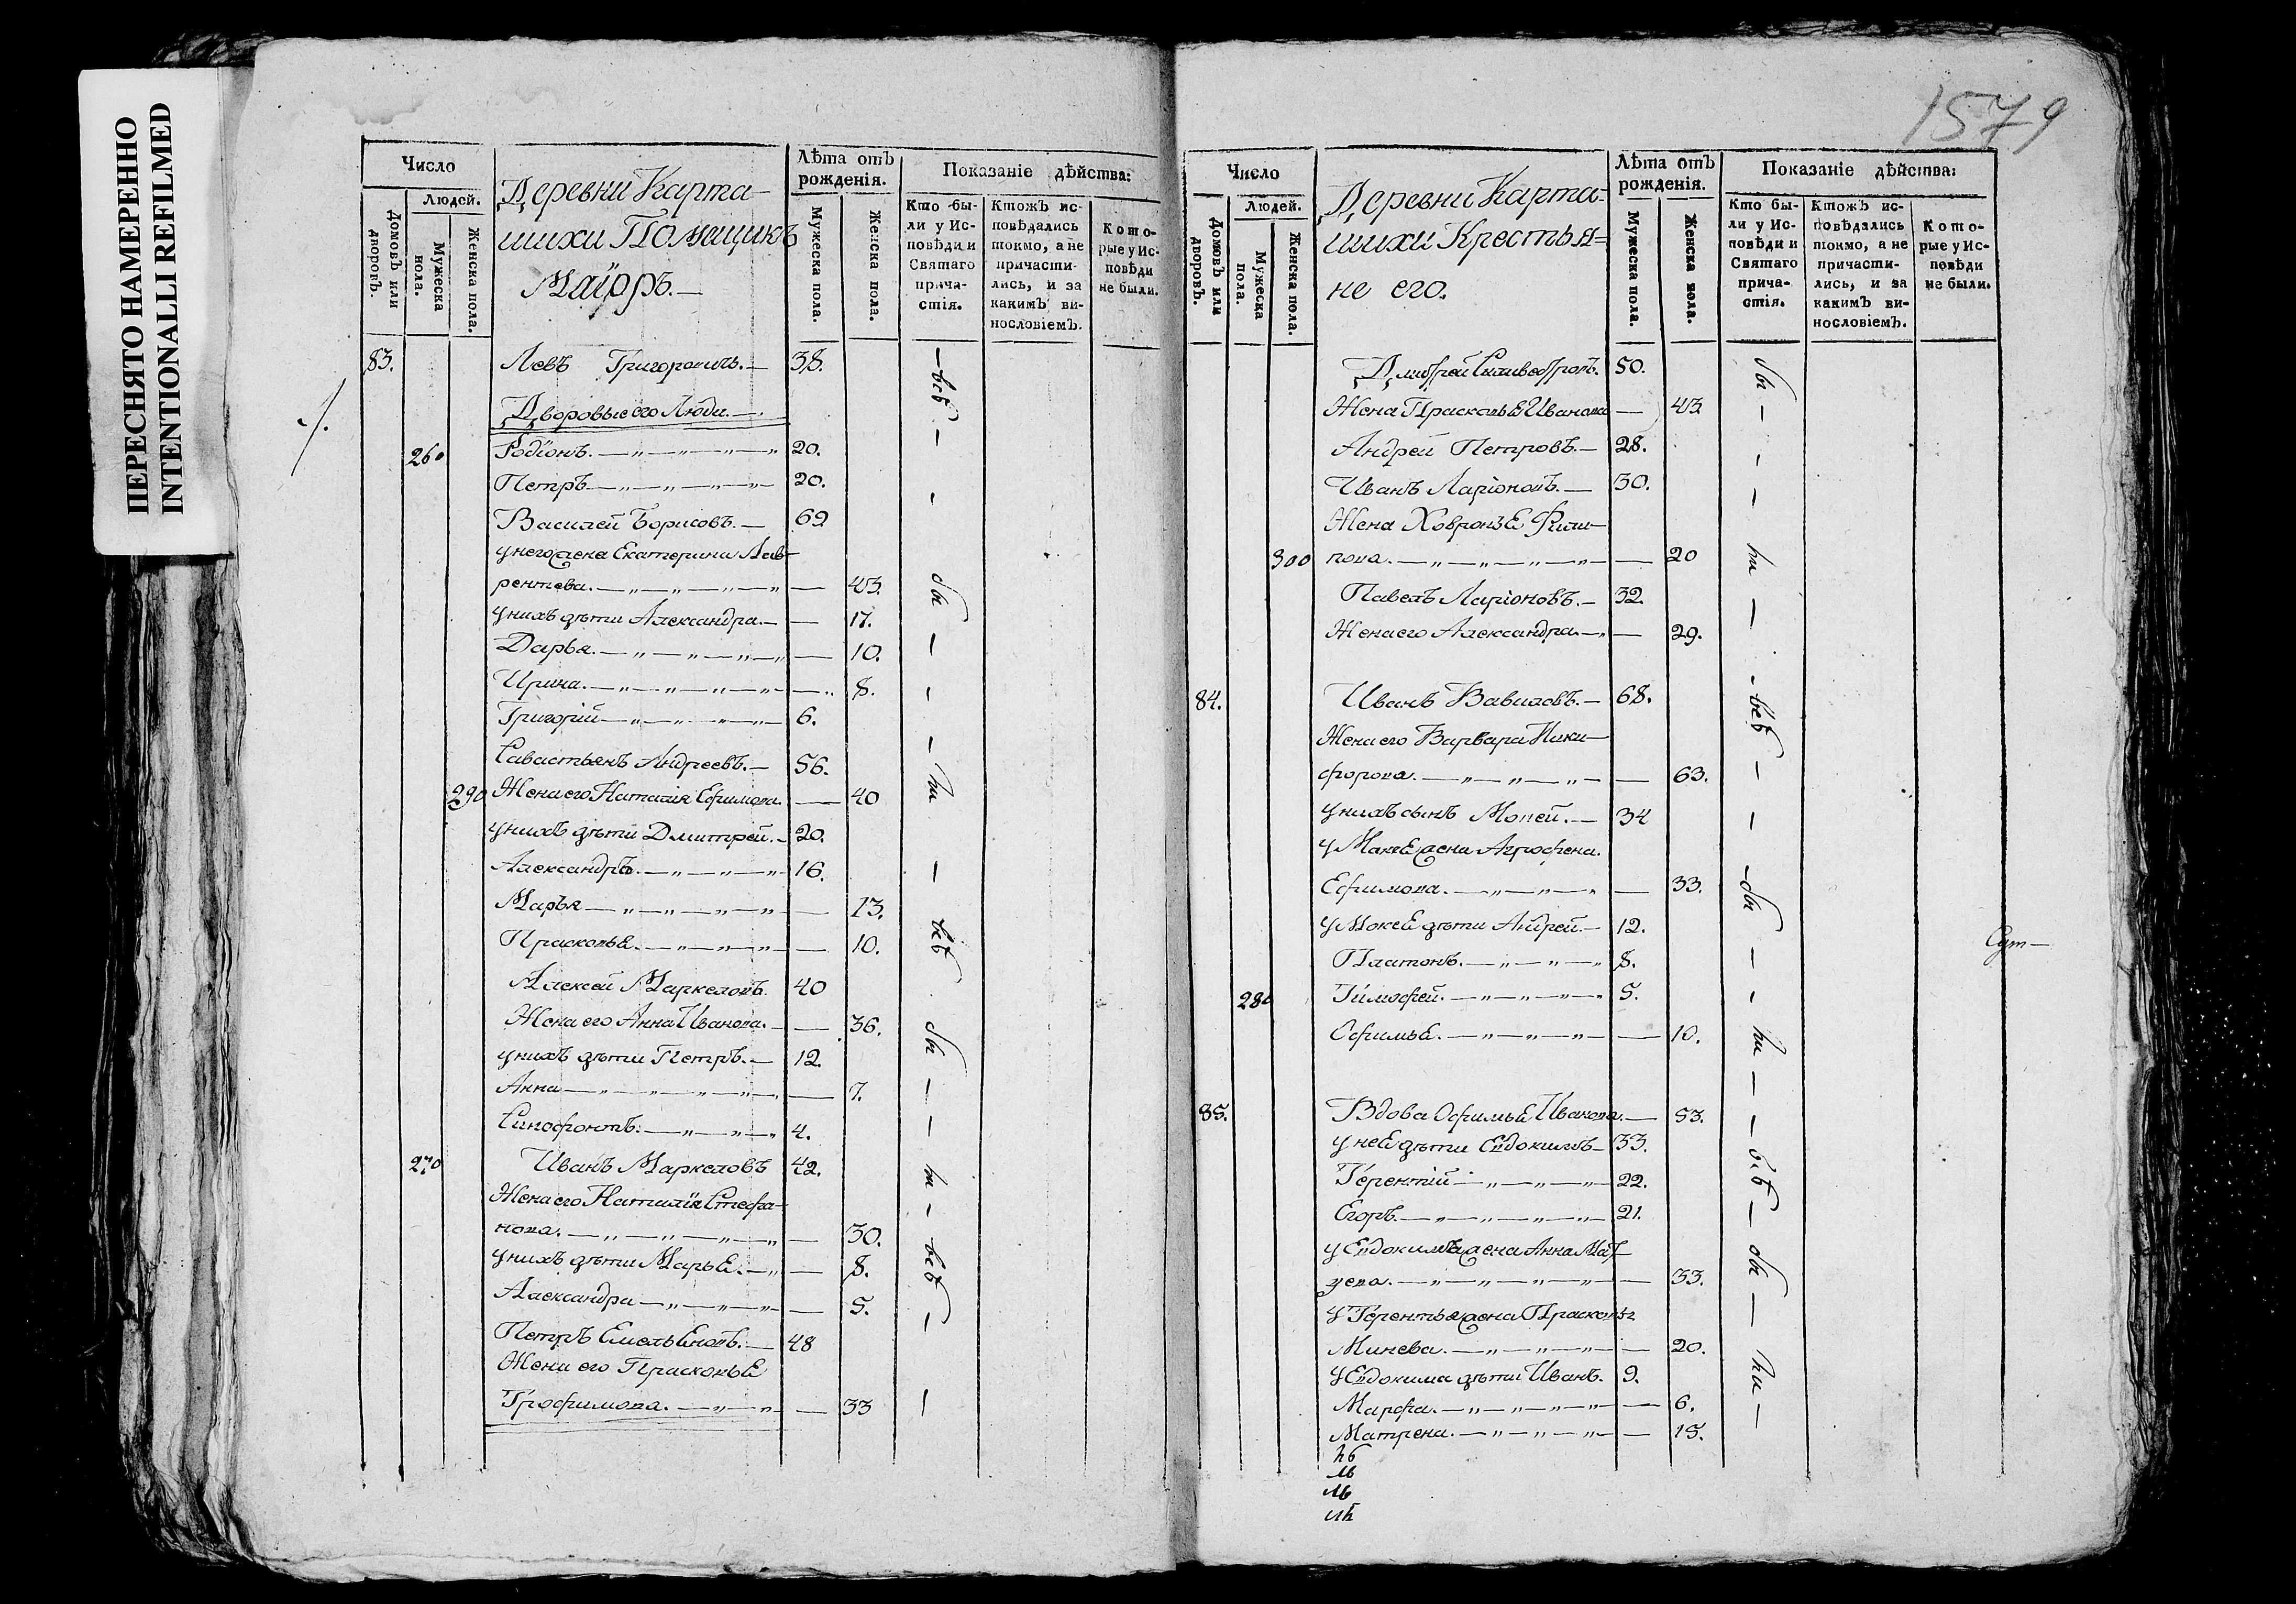 ПЕРЕСНЯТО НАМЕРЕННО
INTENTIONALLI REFILMED
Число
Людей.
Домовъ или дворовъ.
Мужеска пола.
Женска пола.
Деревни Карта-
шихи Помещикъ
Маіоръ.—
Лѣта отъ рожденія.
Мужеска пола.
Женска пола.
Показаніе дѣйства:
Кто бы-
ли у Ис-
повѣди и
Святаго
прича-
стія.
Ктожъ ис-
повѣдались
токмо, а не
причасти-
лись, и за
какимъ ви-
нословіемъ.
Кото-
рые у Ис-
повѣди
не были.
83. Левъ Григорович. — 38.
Дворовые его Люди. —
260 Родіонъ. — 20.
Петръ — 20.
Василей Борисовъ. — 69
у него жена Екатерина Лав-
рентева. — 43.
у нихъ дѣти Александра. — 17.
Дарья. — 10.
Ирина. — 8.
Григорій — 6.
Савастьянъ Андреевъ. — 56.
290 Жена его Наталія Ефимова. — 40
у нихъ дѣти Дмитрей. — 20.
Александръ. — 16.
Марья — 13.
Прасковья. — 10.
Алексей Маркеловъ. 40
Жена его Анна Иванова. — 36.
у нихъ дѣти Петръ. — 12.
Анна — 7.
Синофонтъ. — 4.
270 Иванъ Маркеловъ 42.
Жена его Наталія Стефа-
нова. — 30.
у нихъ дѣти Марья. — 8.
Александра — 5.
Петръ Емельяновъ. — 48
Жена его Прасковья
Трофимова. — 33
всѣ
бы
ли
всѣ
бы
ли
всѣ
1579
Число
Людей.
Домовъ или дворовъ.
Мужеска пола.
Женска пола.
Деревни Карта-
шихи Крестья=
не его.
Лѣта отъ рожденія.
Мужеска пола.
Женска пола.
Показаніе дѣйства:
Кто бы-
ли у Ис-
повѣди и
Святаго
прича-
стія.
Ктожъ ис-
повѣдались
токмо, а не
причасти-
лись, и за
какимъ ви-
нословіемъ.
Кото-
рые у Ис-
повѣди
не были.
Дмитрей Силивестровъ. 50.
Жена Прасковья Иванова — 43
Андрей Петровъ. — 28.
Иванъ Ларіоновъ. — 30.
Жена Хавронья Фили-
300 пова. — 20
Павелъ Ларіоновъ. — 32.
Жена его Александра. — 29.
84. Иванъ Вавиловъ. — 68.
Жена его Варвара Ники-
форова. — 63.
у нихъ сынъ Мокей. — 34
у Мокея жена Агрофена.
Ефимова. — 33.
у Мокея дѣти Андрей. — 12.
Платонъ. — 8.
280 Тимофей. — 5.
Офимья. — 10.
85. Вдова Офимья Иванова. — 53.
у неё дѣти Евдокимъ — 33.
Терентій — 22.
Егоръ. — 21.
у Евдокима жена Анна Мат-
veева. — 33.
у Терентья жена Прасковья
Минева. — 20.
у Евдокима дѣти Иванъ. 9.
Марфа. — 6.
Матрена. — 15.
бы
ли
всѣ
бы
ли
всѣ
бы
ли